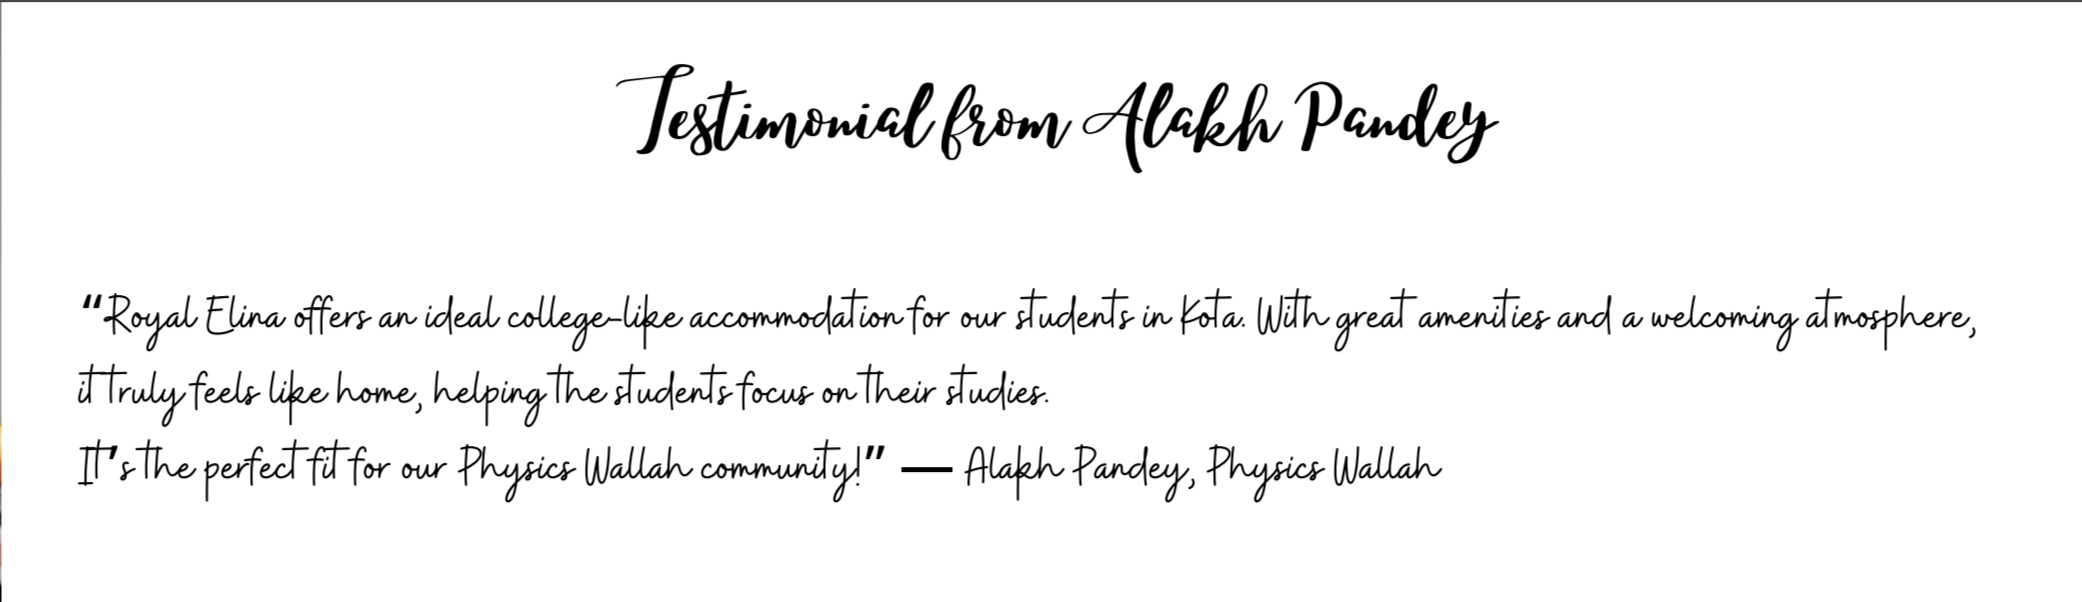 Testimonial from Alakh Pandey
“Royal Elina offers an ideal college-like accommodation for our students in Kota. With great amenities and a welcoming atmosphere,
it truly feels like home, helping the students focus on their studies.
It's the perfect fit for our Physics Wallah community!” — Alakh Pandey, Physics Wallah